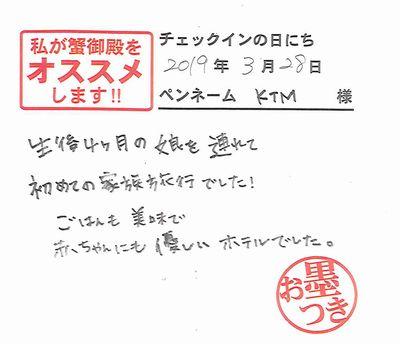 私が蟹御殿を
オススメ
します!!
チェックインの日にち
2019年3月28日
ペンネーム KTM 様
生後4ヶ月の娘を連れて
初めての家族旅行でした!
ごはんも美味で
赤ちゃんにも優しいホテルでした。
お墨つき